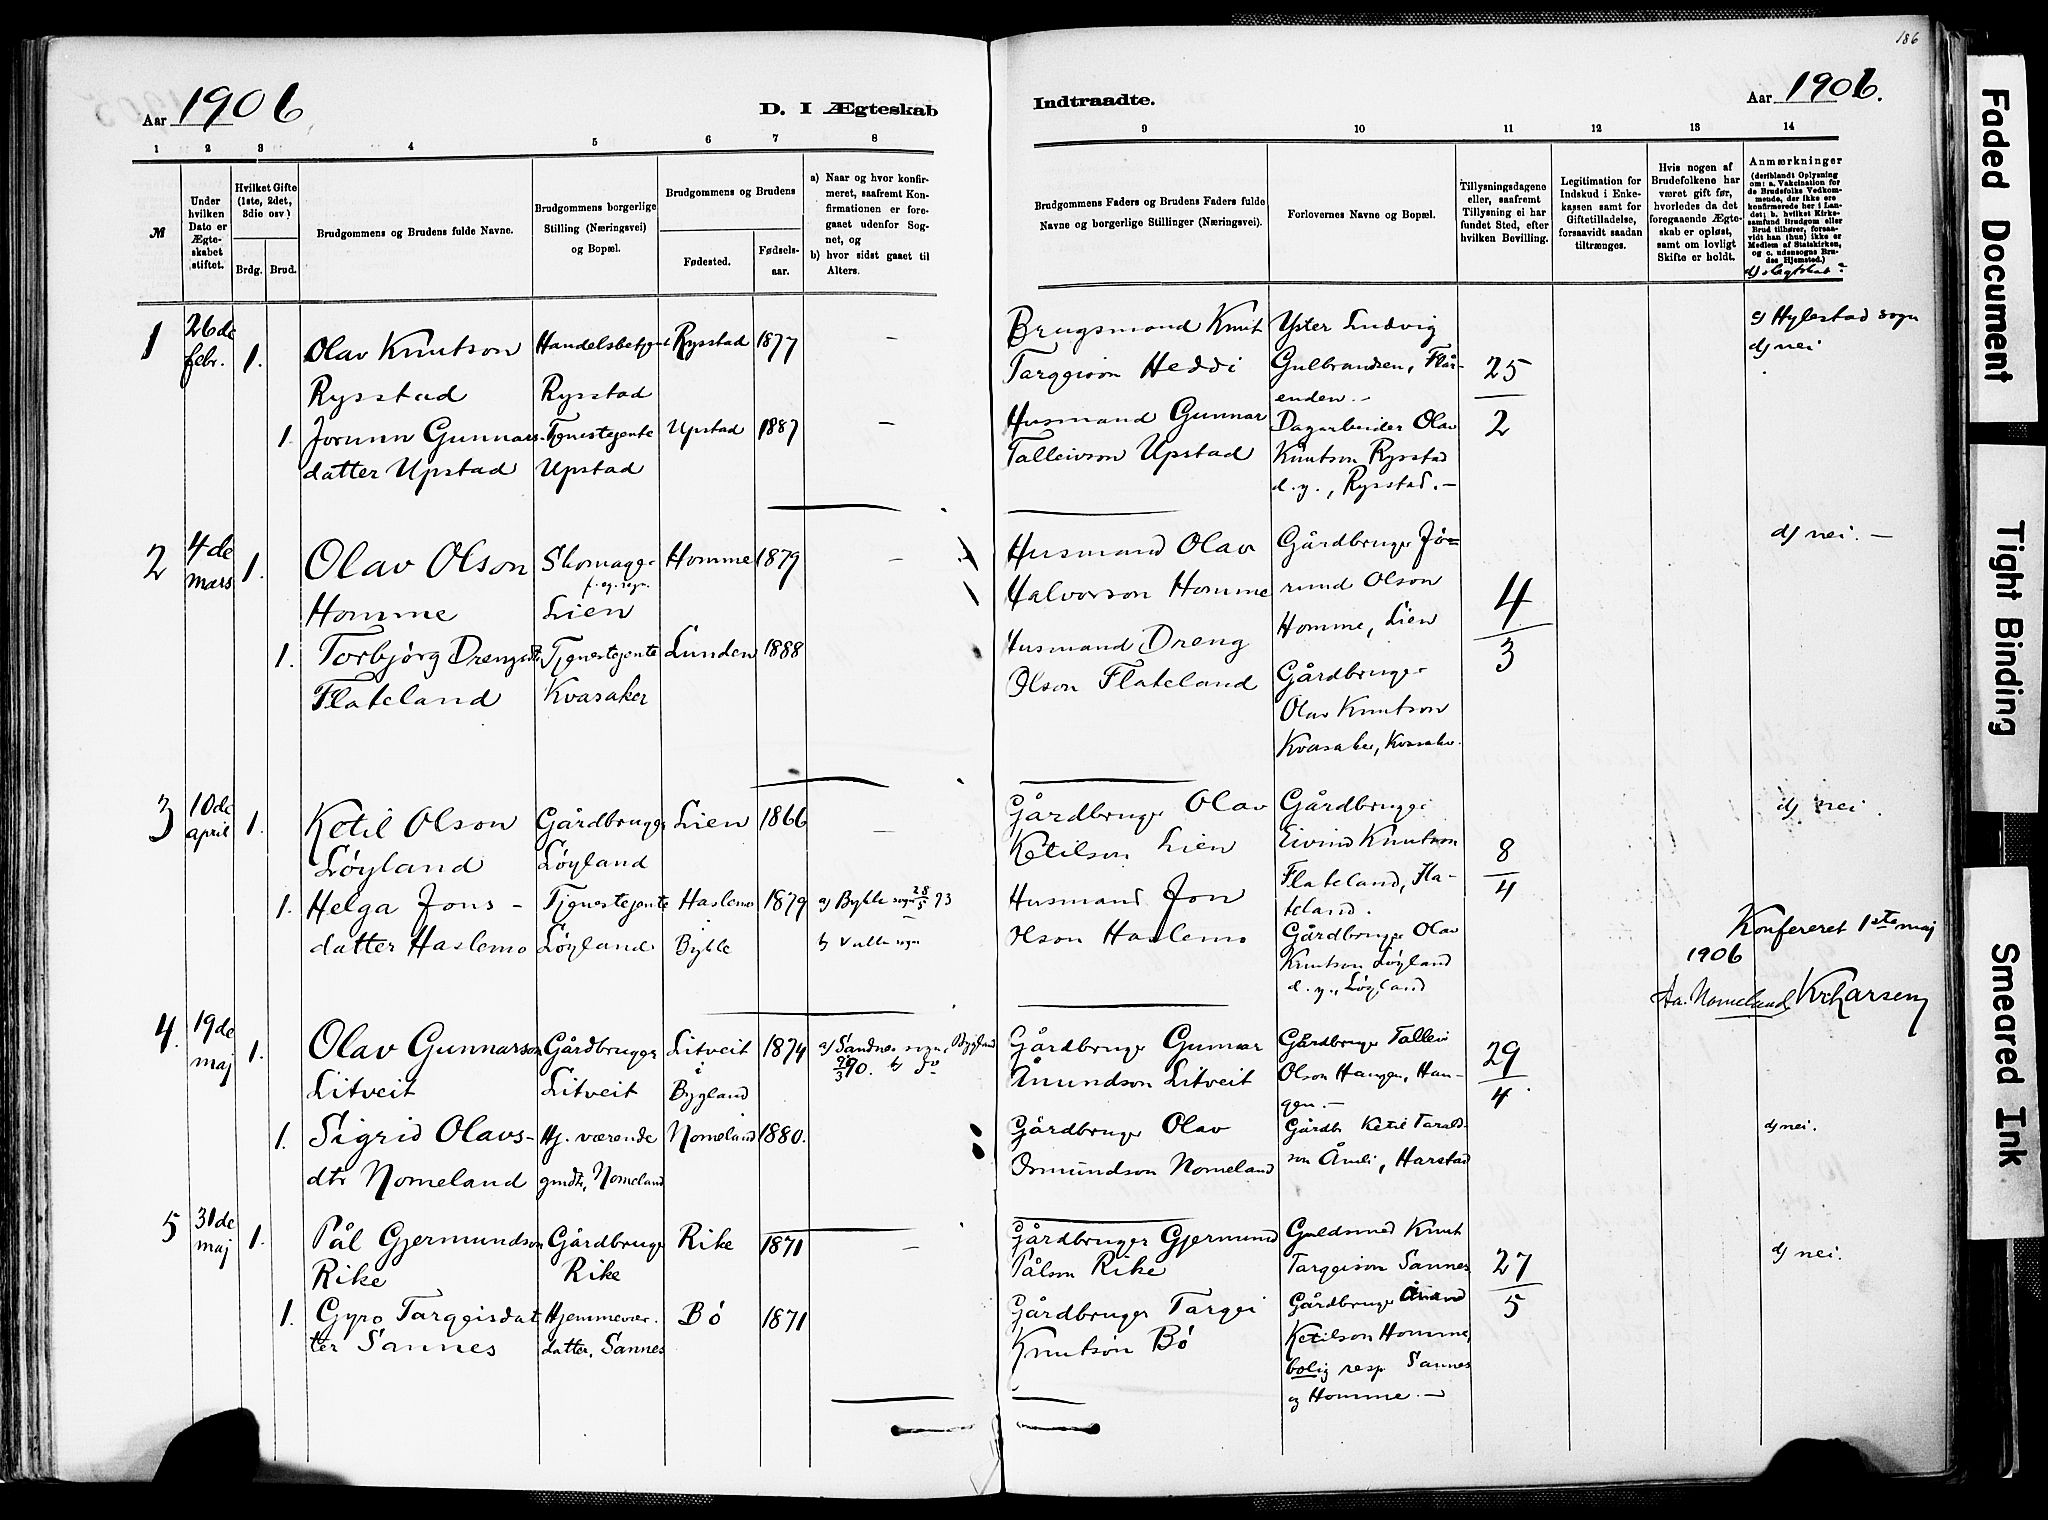 186
Aar 1906
D. I Ægteskab
Indtraadte.
Aar 1906.
1 2 3 4 5 6 7 8
9 10 11 12 13 14
№
Under hvilken Dato er Ægteskabet stiftet.
Hvilket Gifte (1ste, 2det, 3die osv.)
Brdg. Brud.
Brudgommens og Brudens fulde Navne.
Brudgommens borgerlige Stilling (Næringsvei) og Bopæl.
Brudgommens og Brudens
Fødested. Fødselsaar.
a) Naar og hvor konfirmeret, saafremt Konfirmationen er foregaaet udenfor Sognet, og
b) hvor sidst gaaet til Alters.
Brudgommens Faders og Brudens Faders fulde Navne og borgerlige Stillinger (Næringsvei).
Forlovernes Navne og Bopæl.
Tillysningsdagene eller, saafremt Tillysning ei har fundet Sted, efter hvilken Bevilling.
Legitimation for Indskud i Enkekassen samt for Giftetilladelse, forsaavidt saadan tiltrænges.
Hvis nogen af Brudefolkene har været gift før, hvorledes da det foregaaende Ægteskab er opløst, samt om lovligt Skifte er holdt.
Anmærkninger (deriblandt Oplysning om: a. Vakcination for de Brudefolks Vedkommende, der ikke ere konfirmerede her i Landet; b. hvilket Kirkesamfund Brudgom eller Brud tilhører, forsaavidt han (hun) ikke er Medlem af Statskirken, og c. udensogns Brudes Hjemsted.)
d) slegtskab?
1
26de febr.
1.
Olav Knutson
Rysstad
Handelsbetjent
Rysstad
Rysstad
1877
—
Brugsmand Knut
Targeison Heddi
Yster Ludvig
Gulbrandsen, Flår-
enden.—
25
2
c) Hylestad sogn
d) nei
1.
Jorunn Gunnars-
datter Upstad
Tjenestejente
Upstad
Upstad
1887
—
Husmand Gunnar
Talleivson Upstad
Dagarbeider Olav
Knutson Rysstad
d. y., Rysstad.—
2
4de mars
1.
Olav Olson
Homme
Skomager
Lien
Homme
1879
—
Husmand Olav
Halvorson Homme
Gårdbruger Jø-
rund Olson
Homme, Lien
4
3
d) nei.—
1.
Torbjørg Drengsdtr
Flateland
Tjenestejente
Kvasaker
Lunden
1888
Husmand Dreng
Olson Flateland
Gårdbruger
Olav Knutson
Kvasaker, Kvasaker.
3
10de april
1.
Ketil Olson
Løyland
Gårdbruger
Løyland
Lien
1866
—
Gårdbruger Olav
Ketilson Lien
Gårdbruger
Eivind Knutson
Flateland, Fla-
teland.
8
4
d) nei.
1.
Helga Jons-
datter Haslemo
Tjenestejente
Løyland
Haslemo
i
Bykle
1879
a) Bykle sogn 28/5 93
b) Valle sogn
Husmand Jon
Olson Haslemo
Gårdbruger Olav
Knutson Løyland
d. y., Løyland
Konfereret 1ste maj
1906
Aa. Nomeland KrLarsen
4.
19de maj
1.
Olav Gunnarson
Litveit
Gårdbruger
Litveit
Litveit
i
Bygland
1874
a) Sandnes sogn, Bygland
90. b) do
Gårdbruger Gunnar
Ånundson Litveit
Gårdbruger Talleiv
Olson Haugen, Hau-
gen.—
29
4
1.
Sigrid Olavs-
dtr Nomeland
Hj. værende
gmdtr, Nomeland
Nomeland
1880.
Gårdbruger Olav
Osmundson Nomeland
Gårdbr Ketil Tarald-
son Åmli, Harstad
d) nei.
5
31de maj
1.
Pål Gjermundson
Rike
Gårdbruger
Rike
Rike
1871
—
Gårdbruger Gjermund
Pålson Rike
Guldsmed Knut
Targeison Sannes
27
5
d) nei.
1.
Gyro Targeisdat
ter Sannes
Hjemmevær.
datter, Sannes
Bø
1871
Gårdbruger Targei
Knutson Bø
Gårdbruger Ånund
Ketilson Homme,
bolig resp Sannes
og Homme.—
Faded Document
Tight Binding
Smeared Ink